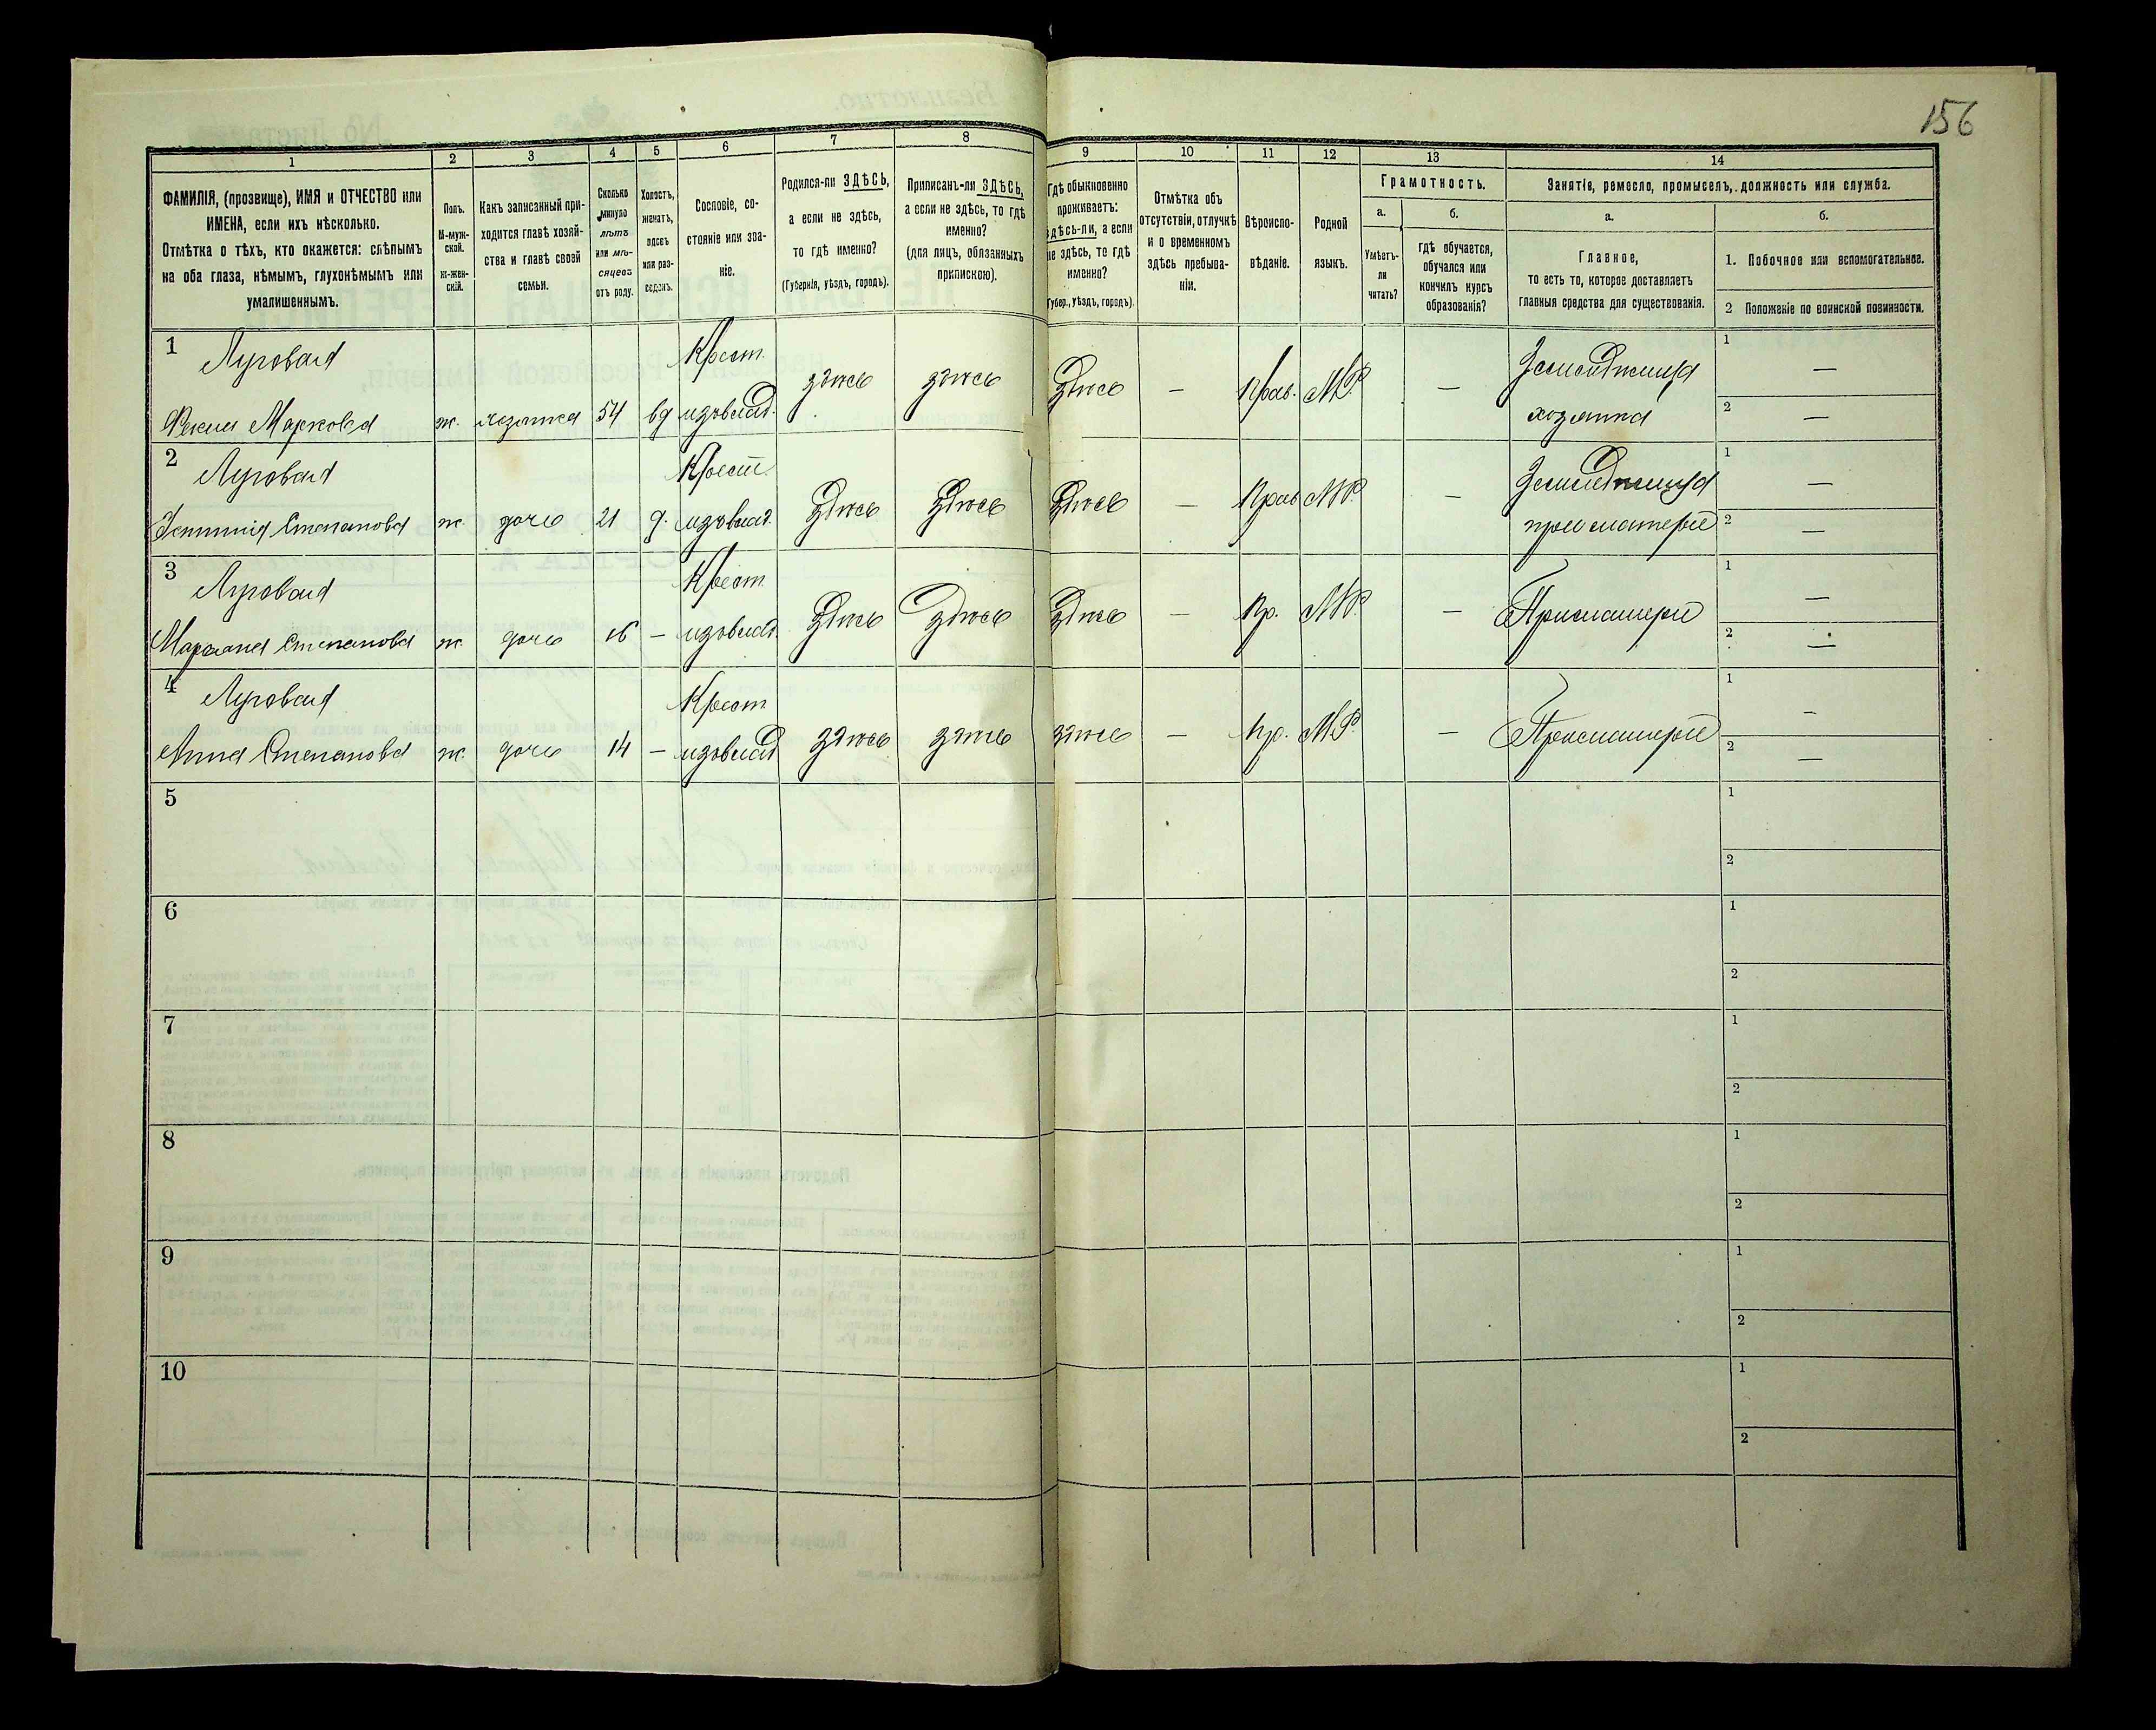 156
1 2 3 4 5 6 7 8 9 10 11 12 13 14
ФАМИЛІЯ, (прозвище), ИМЯ и ОТЧЕСТВО или
ИМЕНА, если ихъ нѣсколько.
Отмѣтка о тѣхъ, кто окажется: слѣпымъ
на оба глаза, нѣмымъ, глухонѣмымъ или
умалишеннымъ.
Полъ.
М-муж-
ской.
ж-жен-
скій.
Какъ записанный при-
ходится главѣ хозяй-
ства и главѣ своей
семьи.
Сколько
минуло
лѣтъ
или мѣ-
сяцевъ
отъ роду.
Холостъ,
женатъ,
вдовъ
или раз-
веденъ.
Сословіе, со-
стояніе или зва-
ніе.
Родился-ли ЗДѢСЬ,
а если не здѣсь,
то гдѣ именно?
(Губернія, уѣздъ, городъ).
Приписанъ-ли ЗДѢСЬ,
а если не здѣсь, то гдѣ
именно?
(для лицъ, обязанныхъ
припискою).
Гдѣ обыкновенно
проживаетъ:
здѣсь-ли, а если
не здѣсь, то гдѣ
именно?
(Губер., уѣздъ, городъ).
Отмѣтка объ
отсутствіи, отлучкѣ
и о временномъ
здѣсь пребыва-
ніи.
Вѣроиспо-
вѣданіе.
Родной
языкъ.
Грамотность.
а.
Умѣетъ-
ли
читать?
б.
гдѣ обучается,
обучался или
кончилъ курсъ
образованія?
Занятіе, ремесло, промыселъ, должность или служба.
а.
Главное,
то есть то, которое доставляетъ
главныя средства для существованія.
б.
1. Побочное или вспомогательное.
2 Положеніе по воинской повинности.
1 Луговая Крест. здѣсь здѣсь здѣсь — Прав. М.Р. — 1 —
Маркова ж. хозяйка 54 вд изъ влад. хозяйка 2 —
2 Луговая Крест. здѣсь здѣсь здѣсь — Прав М.Р. — 1 —
Степанова ж. дочь 21 д. изъ влад. при матери 2 —
3 Луговая Крест. здѣсь здѣсь здѣсь — Пр. М.Р. — При матери 1 —
Степанова ж. дочь 16 — изъ влад. 2 —
4 Луговая Крест здѣсь здѣсь здѣсь — Пр. М.Р. — При матери 1 —
Анна Степанова ж. дочь 14 — изъ влад 2 —
5 1
2
6 1
2
7 1
2
8 1
2
9 1
2
10 1
2